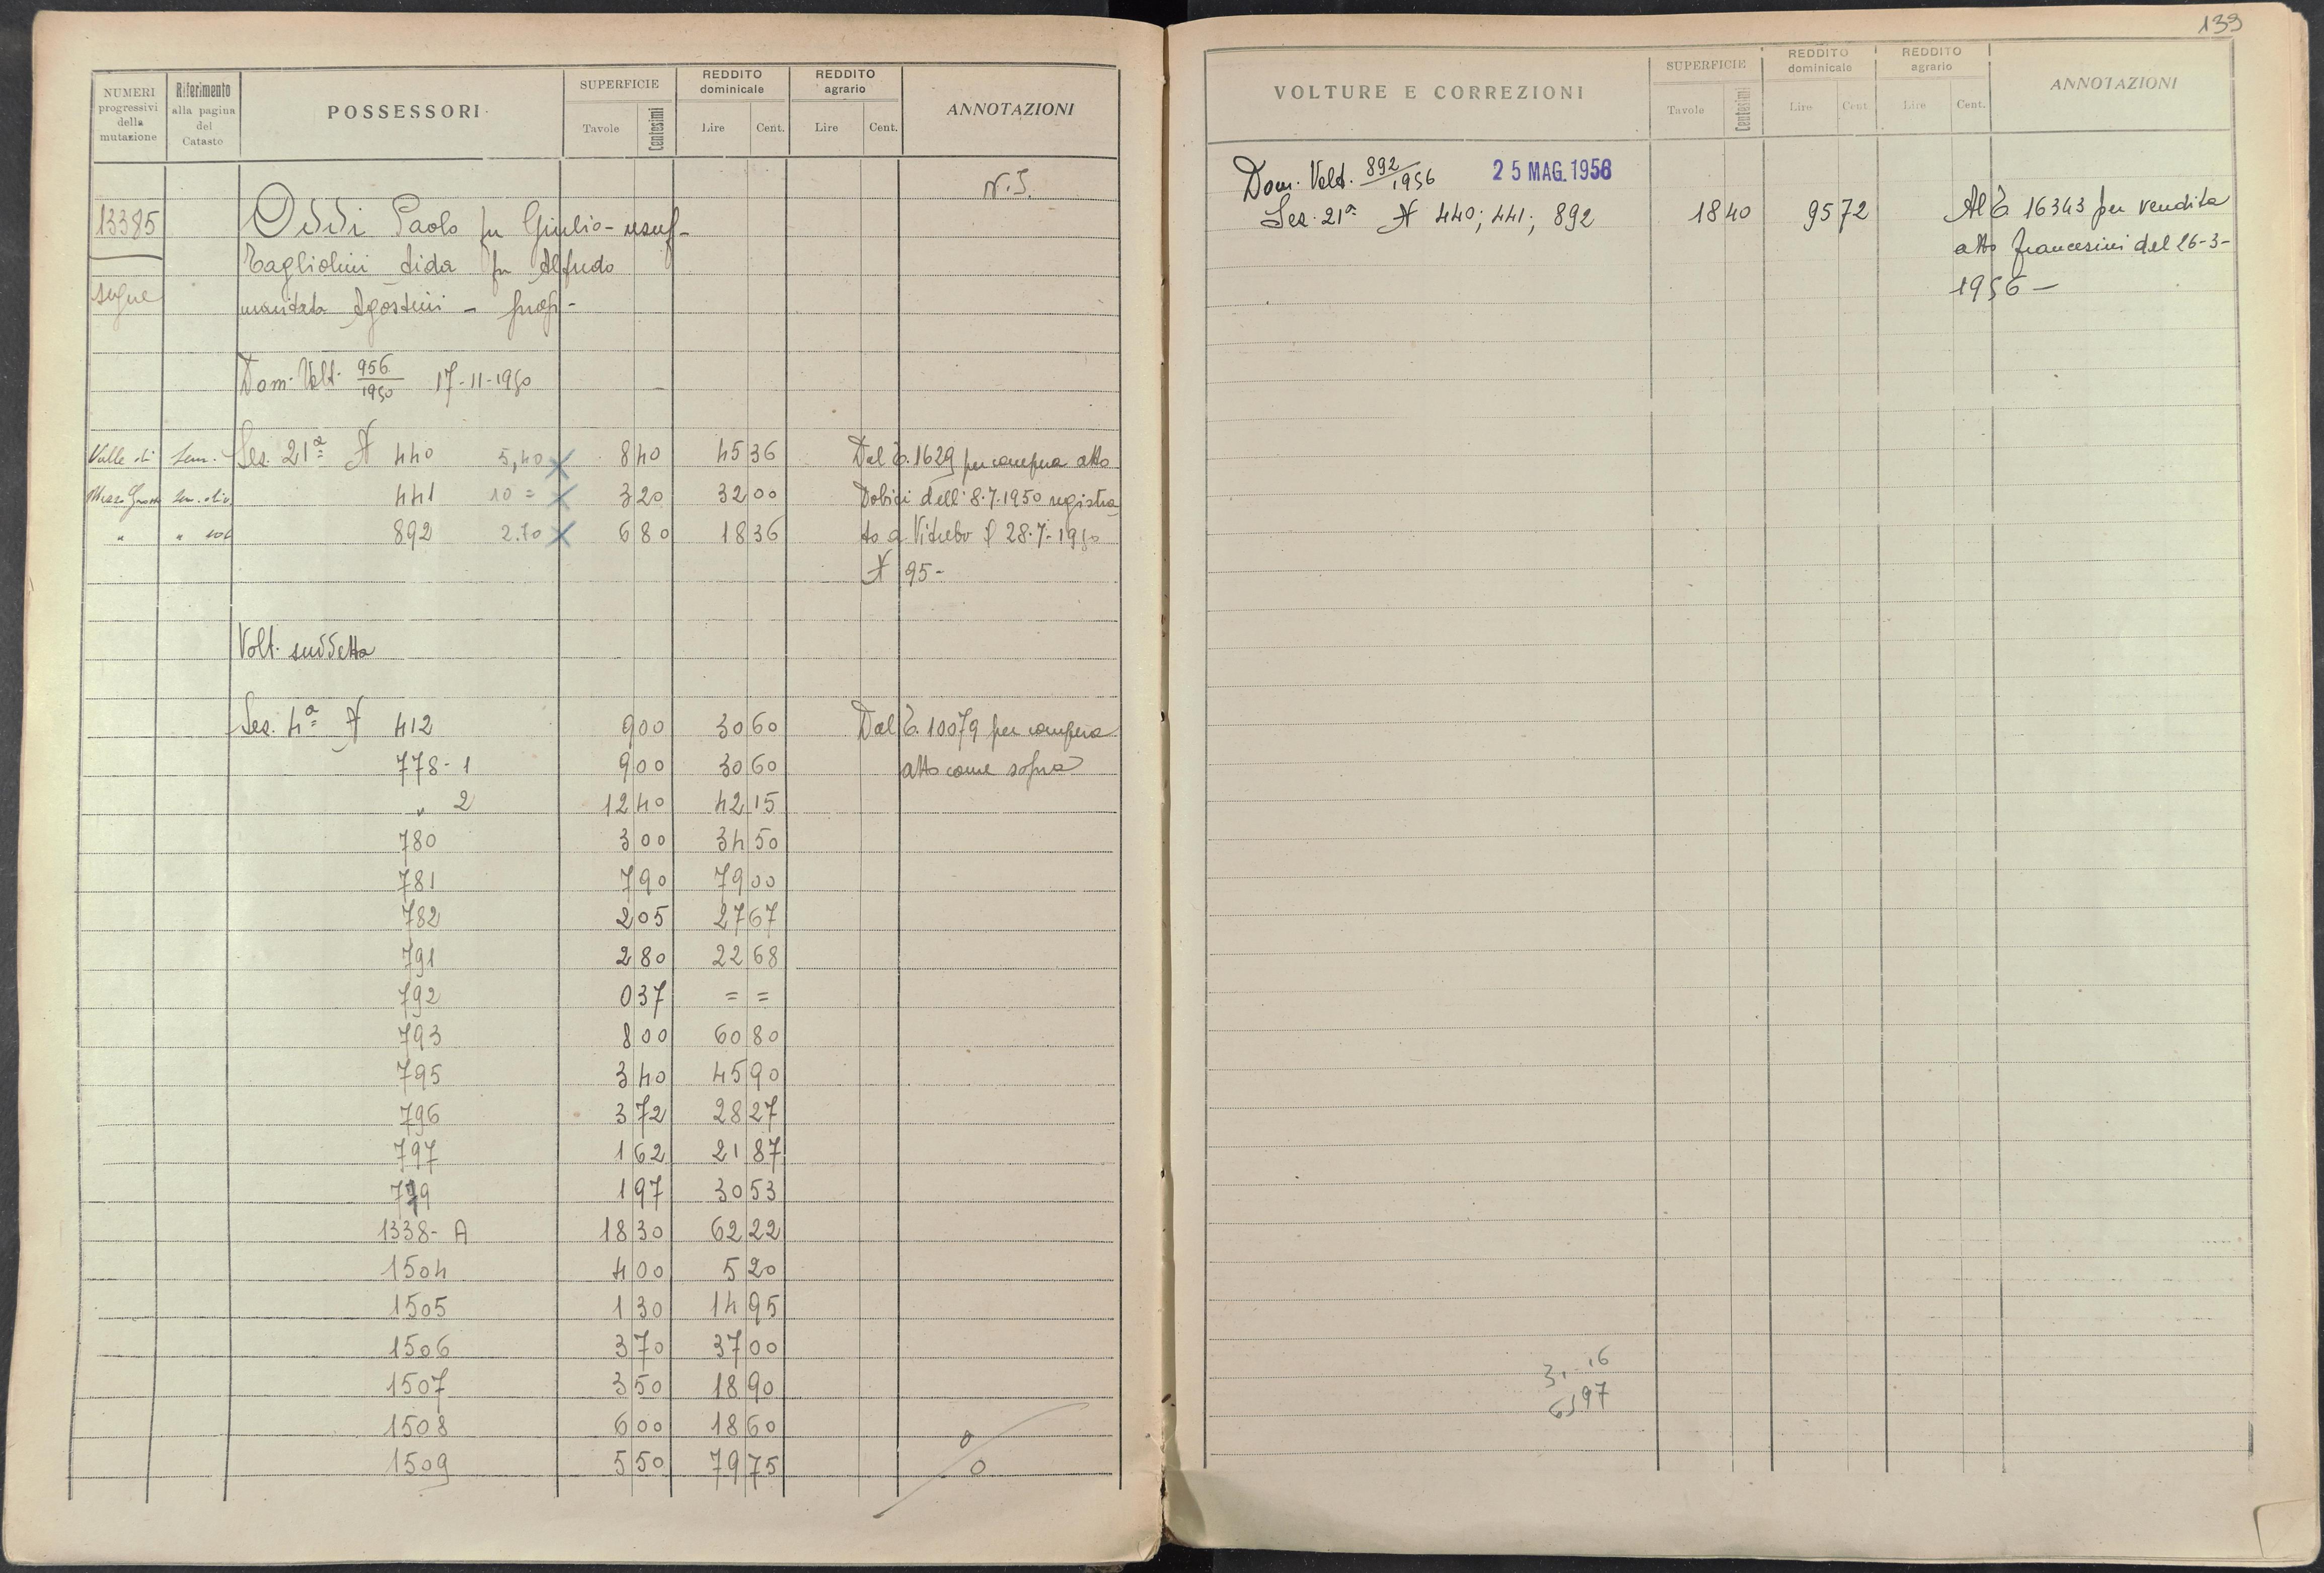 NUMERI progressivi della mutazione
Riferimento alla pagina del Catasto
POSSESSORI
SUPERFICIE
Tavole Centesimi
REDDITO dominicale
Lire Cent.
REDDITO agrario
Lire Cent.
ANNOTAZIONI
N.S.
13385 Oddi Paolo fu Giulio - usuf -
Tagliolini Aida fu Alfredo
segue maritata Agostini - prop -
Dom. Volt. 956/1950 17-11-1950
Valle di Sem. Sez. 21ª N 440 5,40 X 8 40 45 36 Dal T. 1629 per compra atto
Sem. oliv. 441 10 = X 3 20 32 00 Dobici dell' 8.7.1950 registra
" " 892 2.70 X 6 80 18 36 to a Viterbo il 28-7-1950
N 95 -
Volt. suddetta
Sez. 4ª N 412 9 00 30 60 Dal T. 10079 per compera
778 - 1 9 00 30 60 atto come sopra
" 2 12 40 42 15
780 3 00 34 50
781 7 90 79 00
782 2 05 27 67
791 2 80 22 68
792 0 37 = =
793 8 00 60 80
795 3 40 45 90
796 3 72 28 27
797 1 62 21 87
779 1 97 30 53
1338 - A 18 30 62 22
1504 4 00 5 20
1505 1 30 14 95
1506 3 70 37 00
1507 3 50 18 90
1508 6 00 18 60
1509 5 50 79 75
139
VOLTURE E CORREZIONI
SUPERFICIE
Tavole Centesimi
REDDITO dominicale
Lire Cent.
REDDITO agrario
Lire Cent.
ANNOTAZIONI
Dom. Volt. 892/1956 25 MAG. 1956
Sez. 21ª N 440; 441; 892 18 40 95 72 Al T. 16343 per vendita
atto Francesini del 26-3-
1956 -
6,97